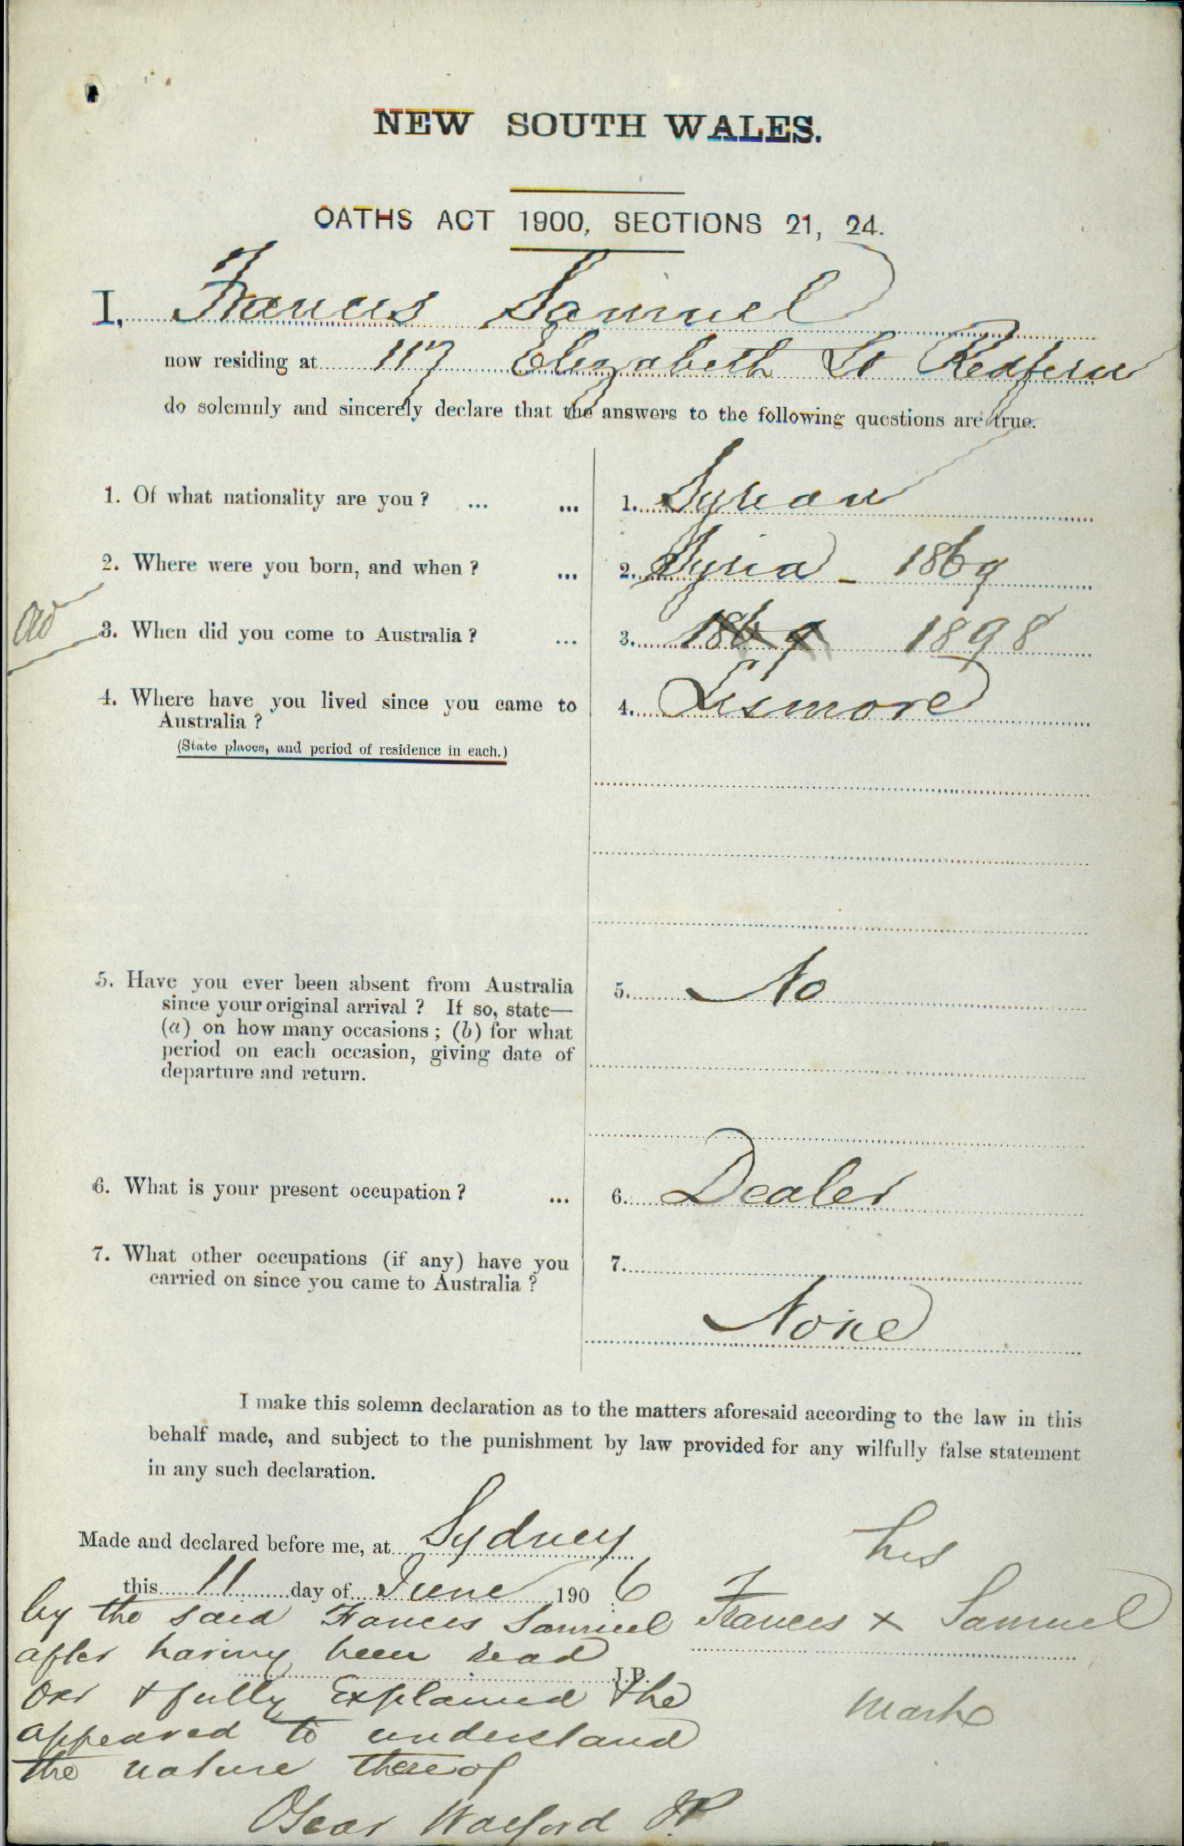 NEW SOUTH WALES.
OATHS ACT 1900, SECTIONS 21, 24.
I, Frances Samuel
now residing at 117 Elizabeth St Redfern
do solemnly and sincerely declare that the answers to the following questions are true.
1. Of what nationality are you? ... ... 1. Syrian
2. Where were you born, and when? ... 2. Syria - 1869
3. When did you come to Australia? ... 3. 1869 1898
4. Where have you lived since you came to 4. Lismore
Australia?
(State places, and period of residence in each.)
5. Have you ever been absent from Australia 5. No
since your original arrival? If so, state—
(a) on how many occasions; (b) for what
period on each occasion, giving date of
departure and return.
6. What is your present occupation? ... 6. Dealer
7. What other occupations (if any) have you 7.
carried on since you came to Australia?
None
I make this solemn declaration as to the matters aforesaid according to the law in this
behalf made, and subject to the punishment by law provided for any wilfully false statement
in any such declaration.
Made and declared before me, at Sydney his
this 11 day of June 1906
by the said Frances Samuel Frances x Samuel
after having been read
J.P.
over & fully Explained & he mark
appeared to understand
the nature thereof
Oscar Walford JP